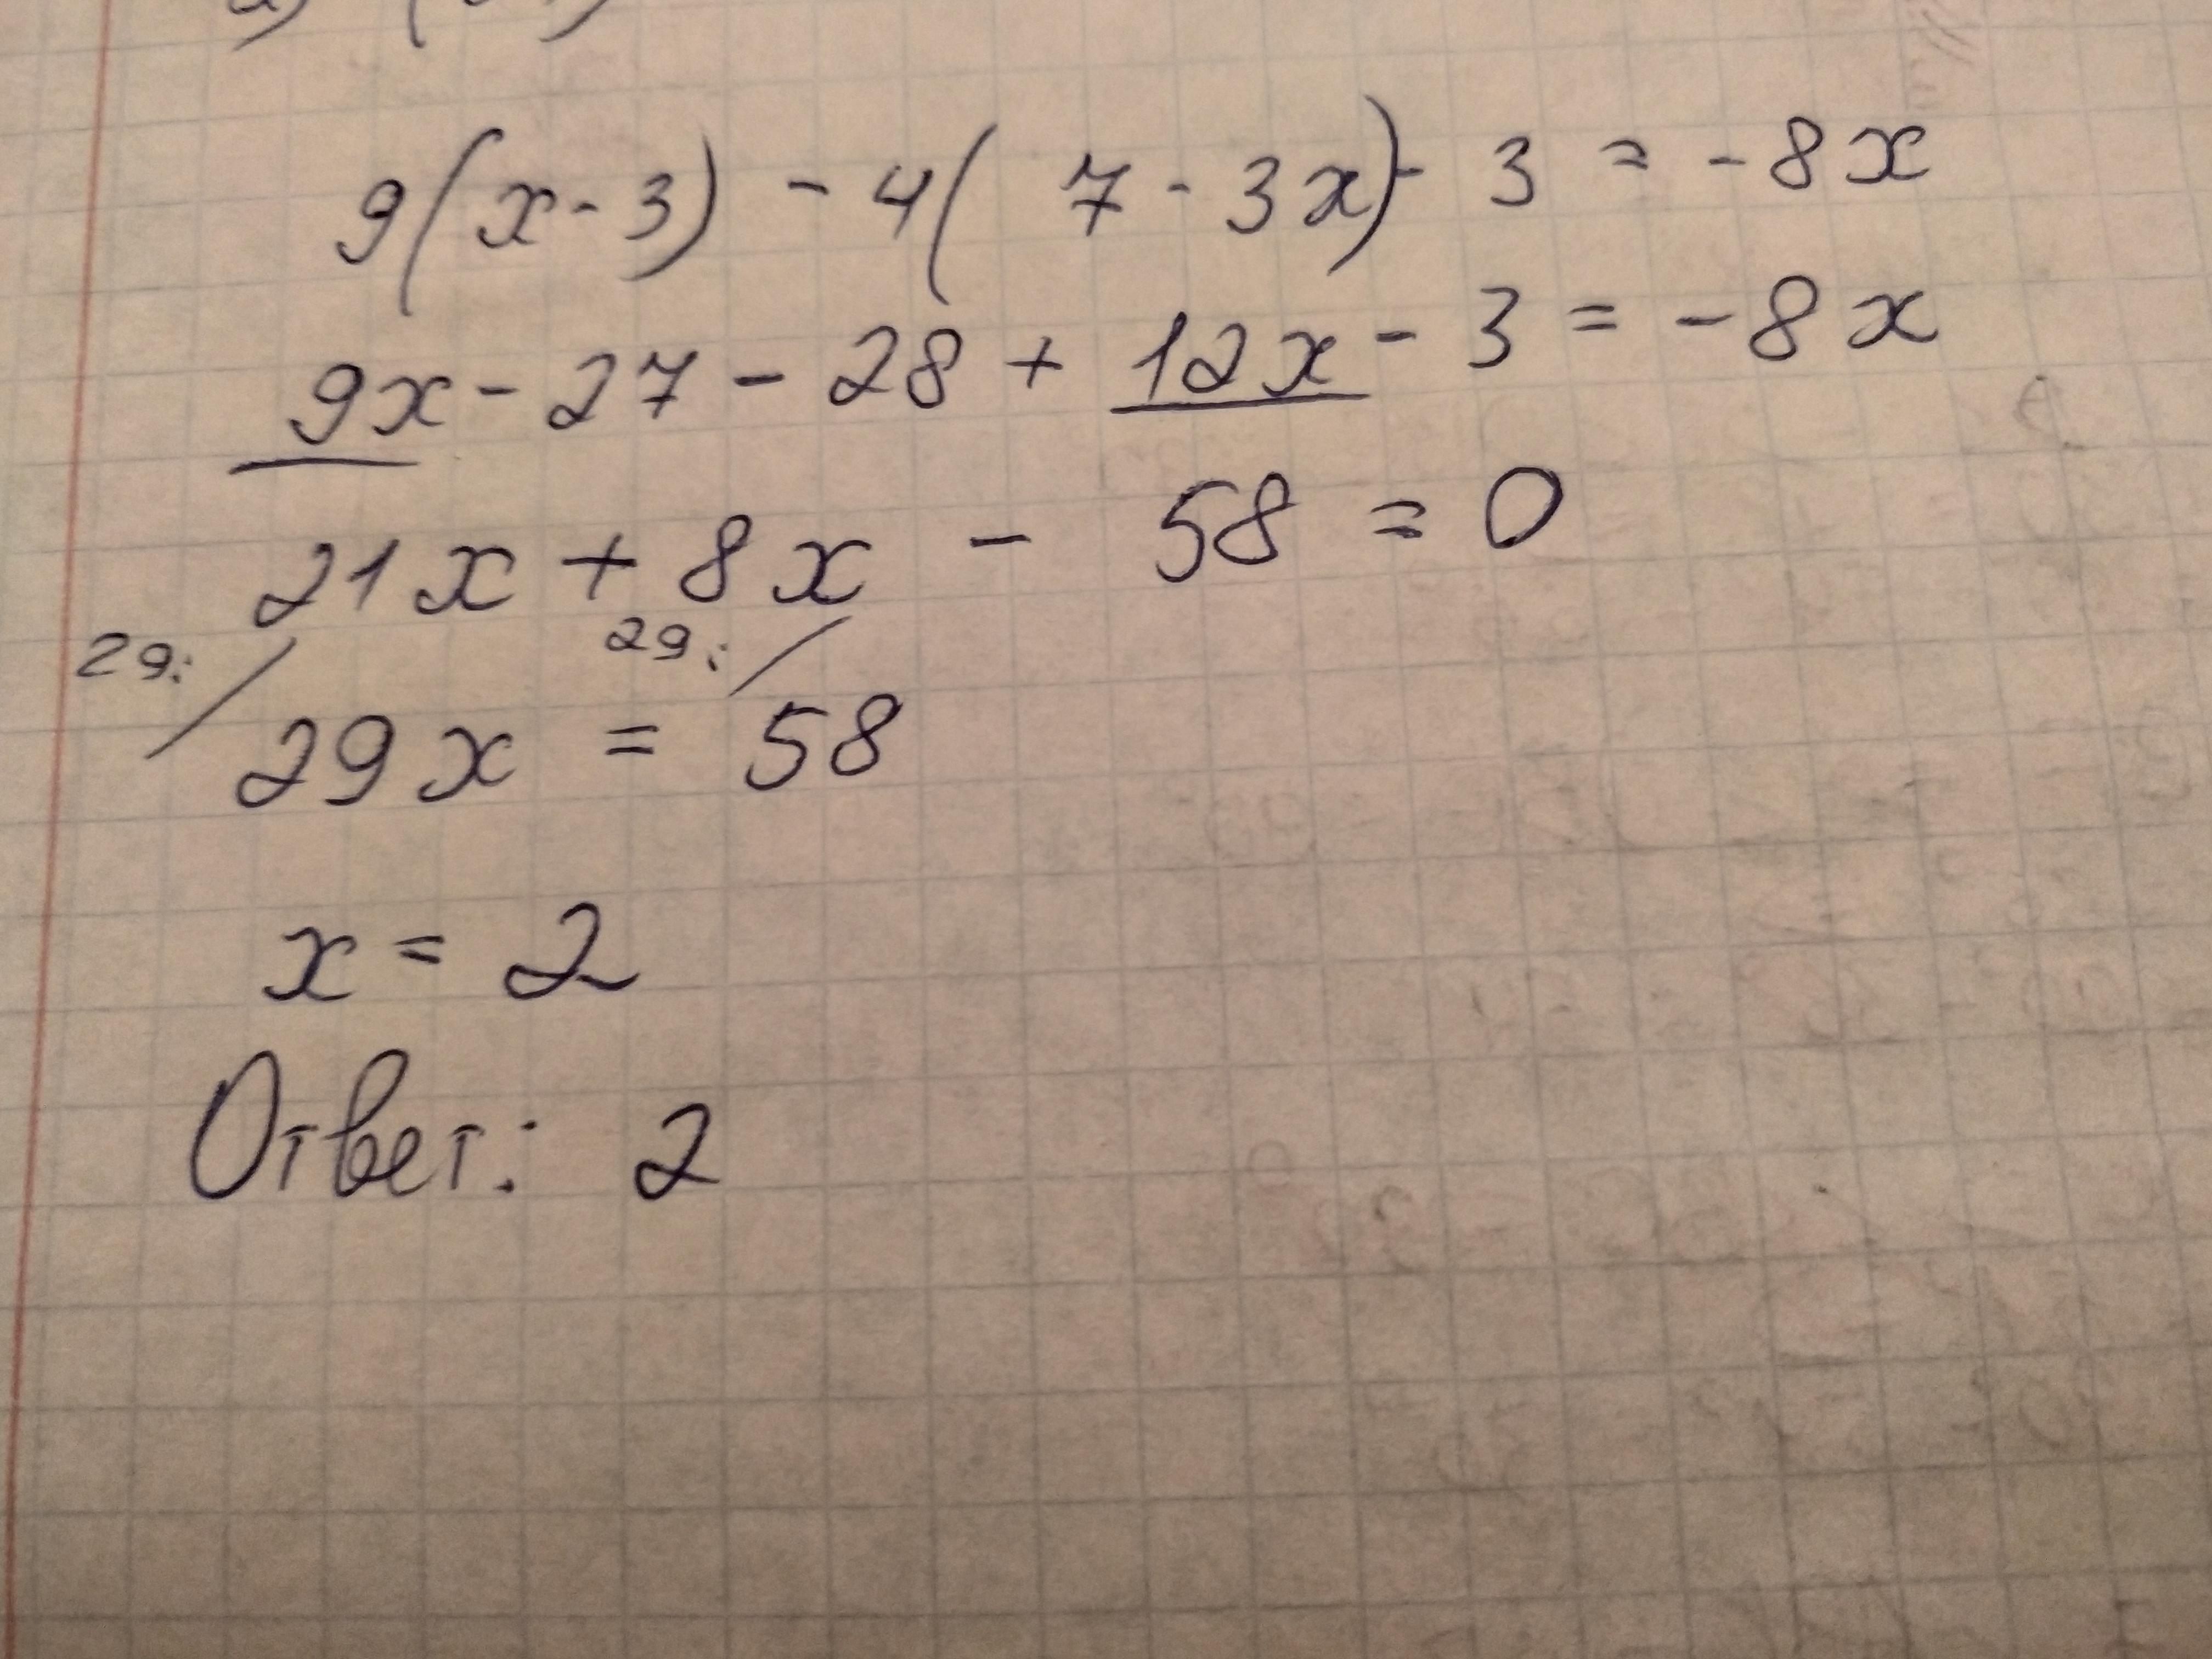 9(x-3) - 4(7-3x) - 3 = -8x
9x - 27 - 28 + 12x - 3 = -8x
21x + 8x - 58 = 0
29: 29:
29x = 58
x = 2
Ответ: 2